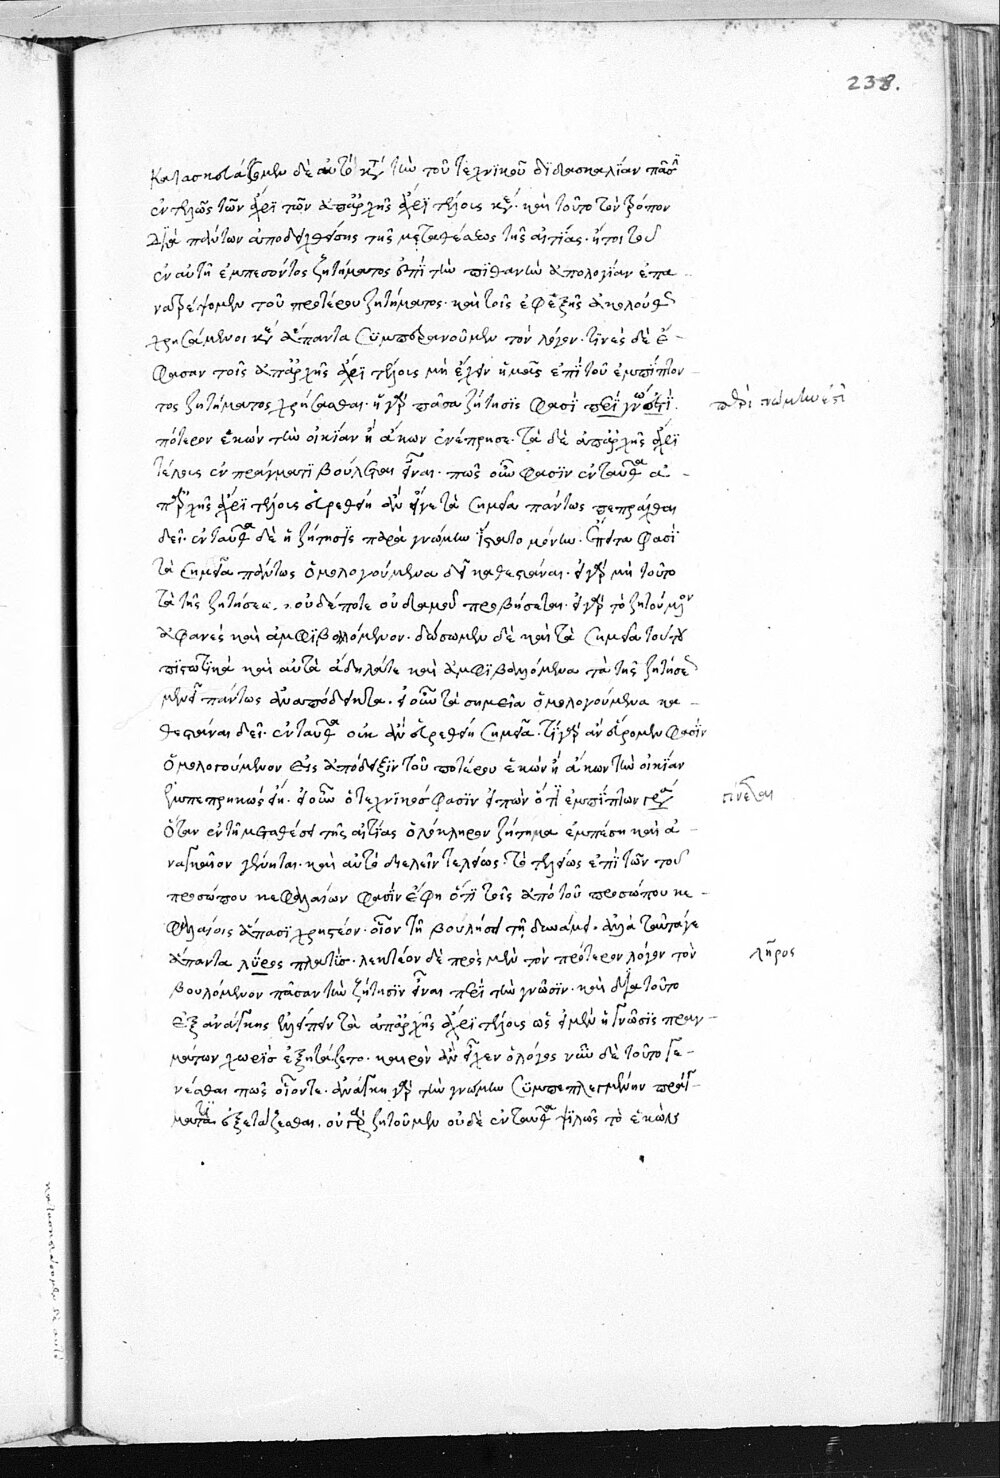 238.
Κατασκευάζομεν δὲ αὐτὸ κατὰ τὴν τοῦ τεχνικοῦ διδασκαλίαν
ἐντελῶς τῶν ἄχρι τῶν ἀπαρχῆς ἄχρι τέλους καὶ τοῦτο τὸν τρόπον
Διὰ πάντων ἀποδειχθείσης τῆς μεταθέσεως τῆς αἰτίας. ἤτοι τοῦ
ἐν αὐτῇ ἐμπεσόντος ζητήματος ἐπὶ τὴν πιθανὴν ἀπολογίαν ἐπα-
ναστρέψομεν τοῦ προτέρου ζητήματος. καὶ τοῖς ἐφεξῆς ἀκολούθως
χρησάμενοι ἅπαντα συμπερανοῦμεν τὸν λόγον. τινὲς δὲ ἔ-
φασαν τοῖς ἀπαρχῆς ἄχρι τέλους μὴ ἔχειν ἡμᾶς ἐπὶ τοῦ ἐμπίπτον-
τος ζητήματος χρήσασθαι. ἡ γὰρ πᾶσα ζήτησις φασὶ περὶ
περὶ γνώμην ἐστὶ
πότερον ἑκὼν τὴν οἰκίαν ἢ ἄκων ἐνέπρησε. τὰ δὲ ἀπαρχῆς ἄχρι
τέλους ἐν πράγματι βούλεται εἶναι. πῶς οὖν φασὶν ἐνταῦθα ἀ-
παρχῆς ἄχρι τέλους εὑρεθείη ἂν εἴγε τὰ σημεῖα πάντως πεπρᾶχθαι
δεῖ. ἐνταῦθα δὲ ἡ ζήτησις παρὰ γνώμην ἵστατο μόνην. ἔπειτα φασὶ
τὰ σημεῖα πάντως ὁμολογούμενα δεῖ καθεστάναι. εἰ γὰρ μὴ τοῦτο
τὰ τῆς ζητήσεως οὐδέποτε οὐδαμοῦ προβήσεται. εἰ γὰρ τὸ ζητούμενον
ἀφανὲς καὶ ἀμφιβαλλόμενον. δώσωμεν δὲ καὶ τὰ σημεῖα τούτου
πιστωτικὰ καὶ αὐτὰ ἄδηλάτε καὶ ἀμφιβαλλόμενα τὰ τῆς ζητήσεως
μενεῖ πάντως ἀναπόδεικτα. εἰ οὖν τὰ σημεῖα ὁμολογούμενα κα-
θεστάναι δεῖ. ἐνταῦθα οὐκ ἂν εὑρεθείη σημεῖα. τί γὰρ ἂν εὕρομεν φασὶν
ὁμολογούμενον εἰς ἀπόδειξιν τοῦ ποτέρου ἑκὼν ἢ ἄκων τὴν οἰκίαν
ἐμπεπρηκὼς εἴη. εἰ οὖν ὁ τεχνικός φασιν εἰπὼν ὅτι ἐμπίπτων
γίνεται
ὅταν ἐν τῇ μεταθέσει τῆς αἰτίας ὁλόκληρον ζήτημα ἐμπέσῃ καὶ ἀ-
ναγκαῖον γένηται. καὶ αὐτὸ διελεῖν τελείως. τὸ τελείως ἐπὶ τῶν τοῦ
προσώπου κεφαλαίων φασὶν ἔφη ὅτι τοῖς ἀπὸ τοῦ προσώπου κε-
φαλαίοις ἅπασι χρηστέον. οἷον τῇ βουλήσει τῇ δυνάμει. ἀλλὰ ταῦτάγε
ἅπαντα λῦρος πλατύς. λεκτέον δὲ πρὸς μὲν τὸν πρότερον λόγον τὸν
λῆρος
βουλόμενον πᾶσαν τὴν ζήτησιν εἶναι περὶ τὴν γνῶσιν. καὶ διὰ τοῦτο
ἐξ ἀνάγκης ἐλείπειν τὰ ἀπαρχῆς ἄχρι τέλους ὡς εἰ μὲν ἡ γνῶσις πραγ-
μάτων χωρὶς ἐξητάζετο. καιρὸν ἂν εἶχεν ὁ λόγος νῦν δὲ τοῦτο γε-
νέσθαι πῶς οἷόντε. ἀνάγκη γὰρ τὴν γνώμην συμπεπλεγμένην πράγ-
μασιν ἐξετάζεσθαι. οὐ γὰρ ζητοῦμεν οὐδὲ ἐνταῦθα ψιλῶς τὸ ἑκὼν
κατασκευάσομεν δὲ αυτὸ